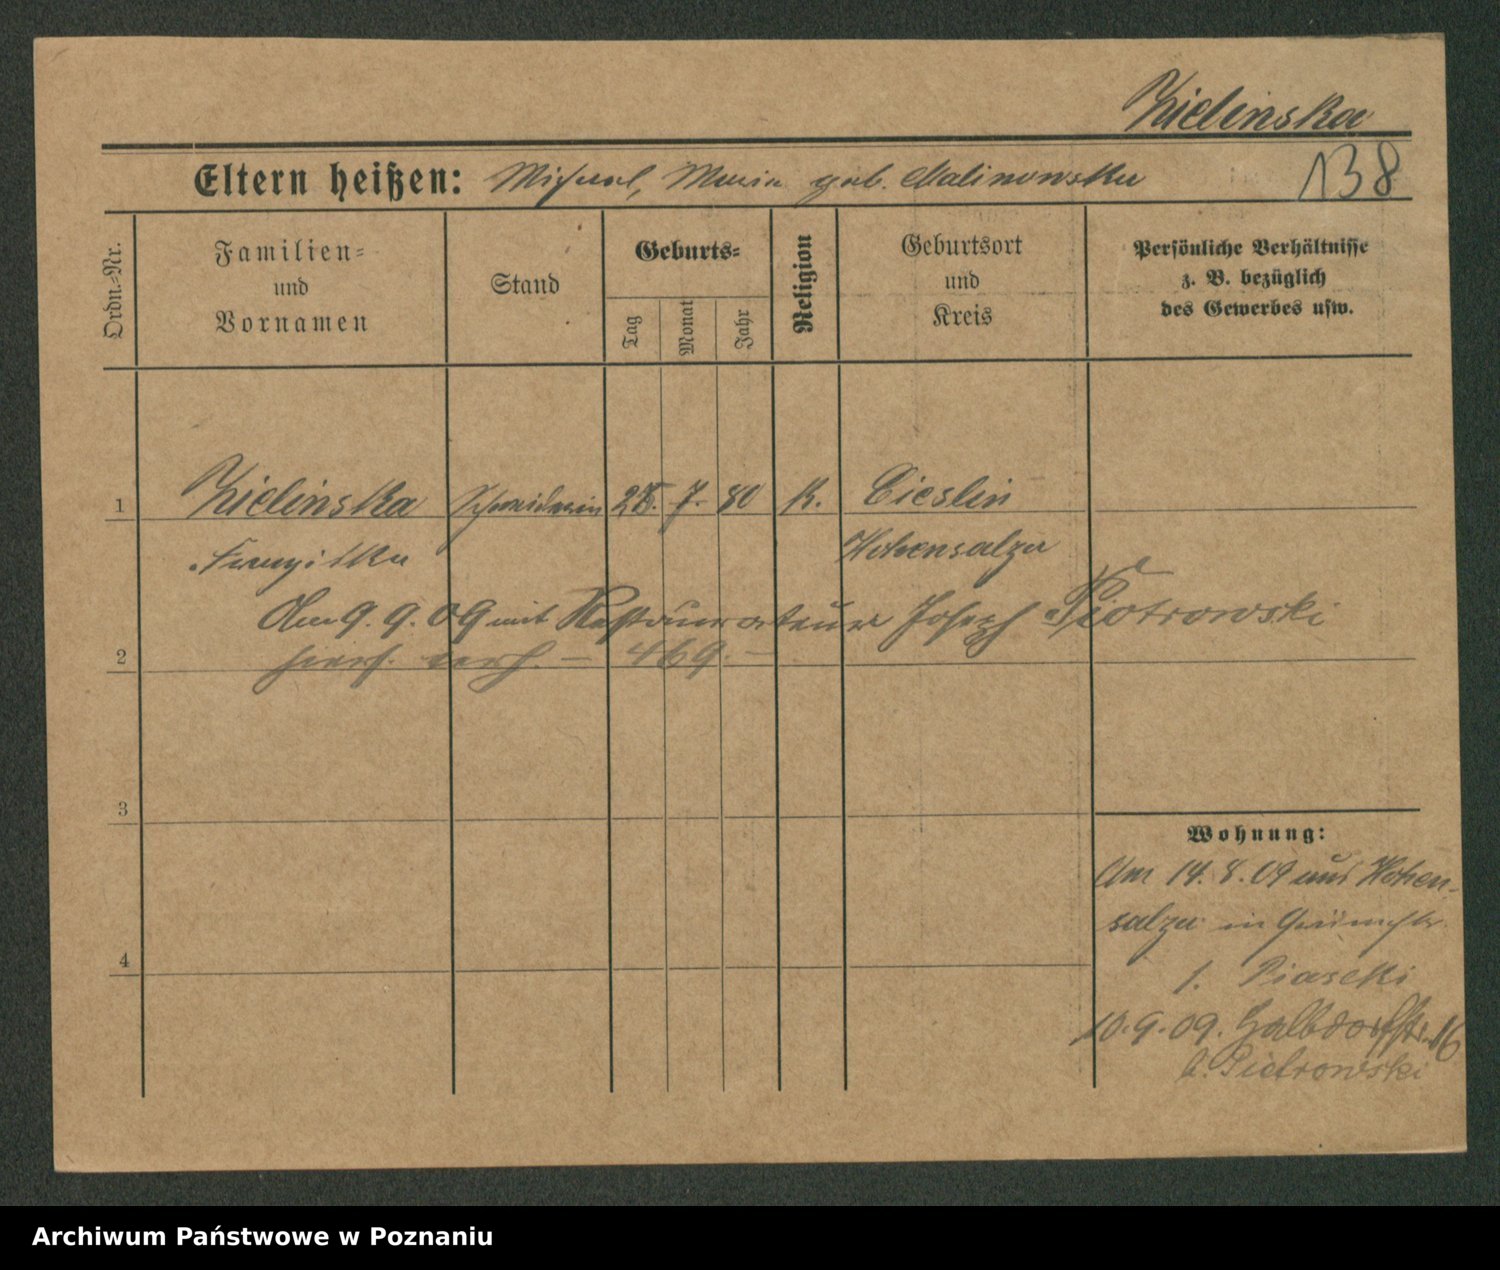 Zielinska
Eltern heißen: Michael, Maria geb. Malinowska 138
Ordn.-Nr.
Familien-
und
Vornamen
Stand
Geburts-
Tag
Monat
Jahr
Religion
Geburtsort
und
Kreis
Persönliche Verhältnisse
z. B. bezüglich
des Gewerbes usw.
1 Zielinska Schneiderin 7. 80 K. Cieslin
Franziska Hohensalza
Am 9.9.09 mit Restaurateur Joseph Piotrowski
2 hiers. verh. – 469. –
3
4
Wohnung:
Am 14.8.09 aus Hohen-
salza in
b. Piasecki
10.9.09. 16
b. Piotrowski
Archiwum Państwowe w Poznaniu